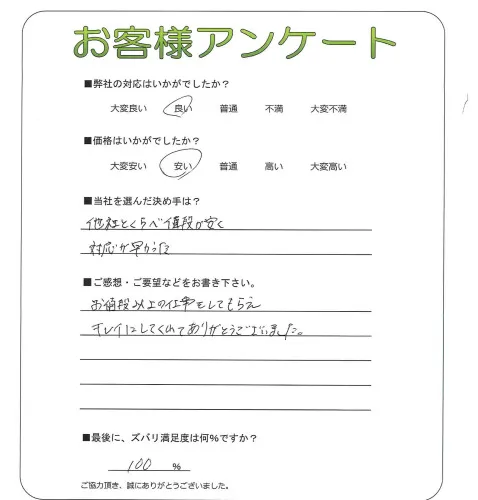 お客様アンケート
■弊社の対応はいかがでしたか？
大変良い 良い 普通 不満 大変不満
■価格はいかがでしたか？
大変安い 安い 普通 高い 大変高い
■当社を選んだ決め手は？
他社とくらべ値段が安く
対応が早かった
■ご感想・ご要望などをお書き下さい。
お値段以上の仕事をしてもらえ
キレイにしてくれてありがとうございました。
■最後に、ズバリ満足度は何%ですか？
100 %
ご協力頂き、誠にありがとうございました。